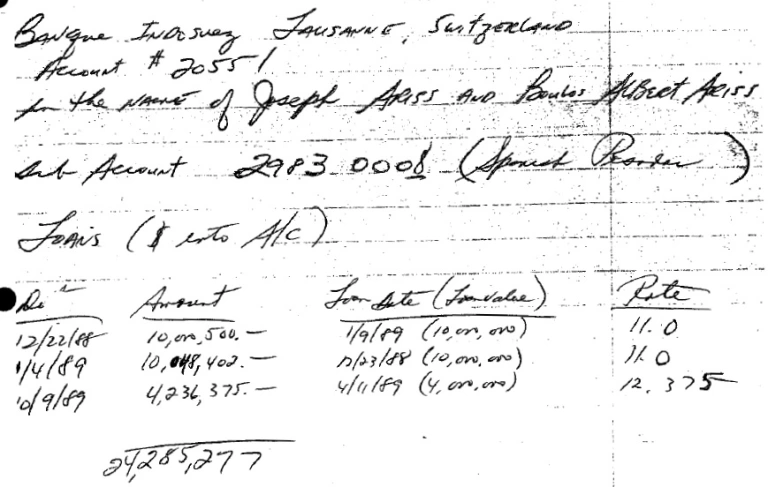 Banque Indosuez Lausanne, Switzerland
Account # 20551
In the NAME of Joseph Ariss AND Boulos Albert Ariss
Sub Account 2983 0008 (Spanish )
Loans ($ into A/C)
Amount Loan Date (Loan Value) Rate
12/22/88 10,000,500.— 1/9/89 (10,000,000) 11.0
1/4/89 10,048,402.— 12/23/88 (10,000,000) 11.0
10/9/89 4,236,375.— 4/11/89 (4,000,000) 12.375
24,285,277